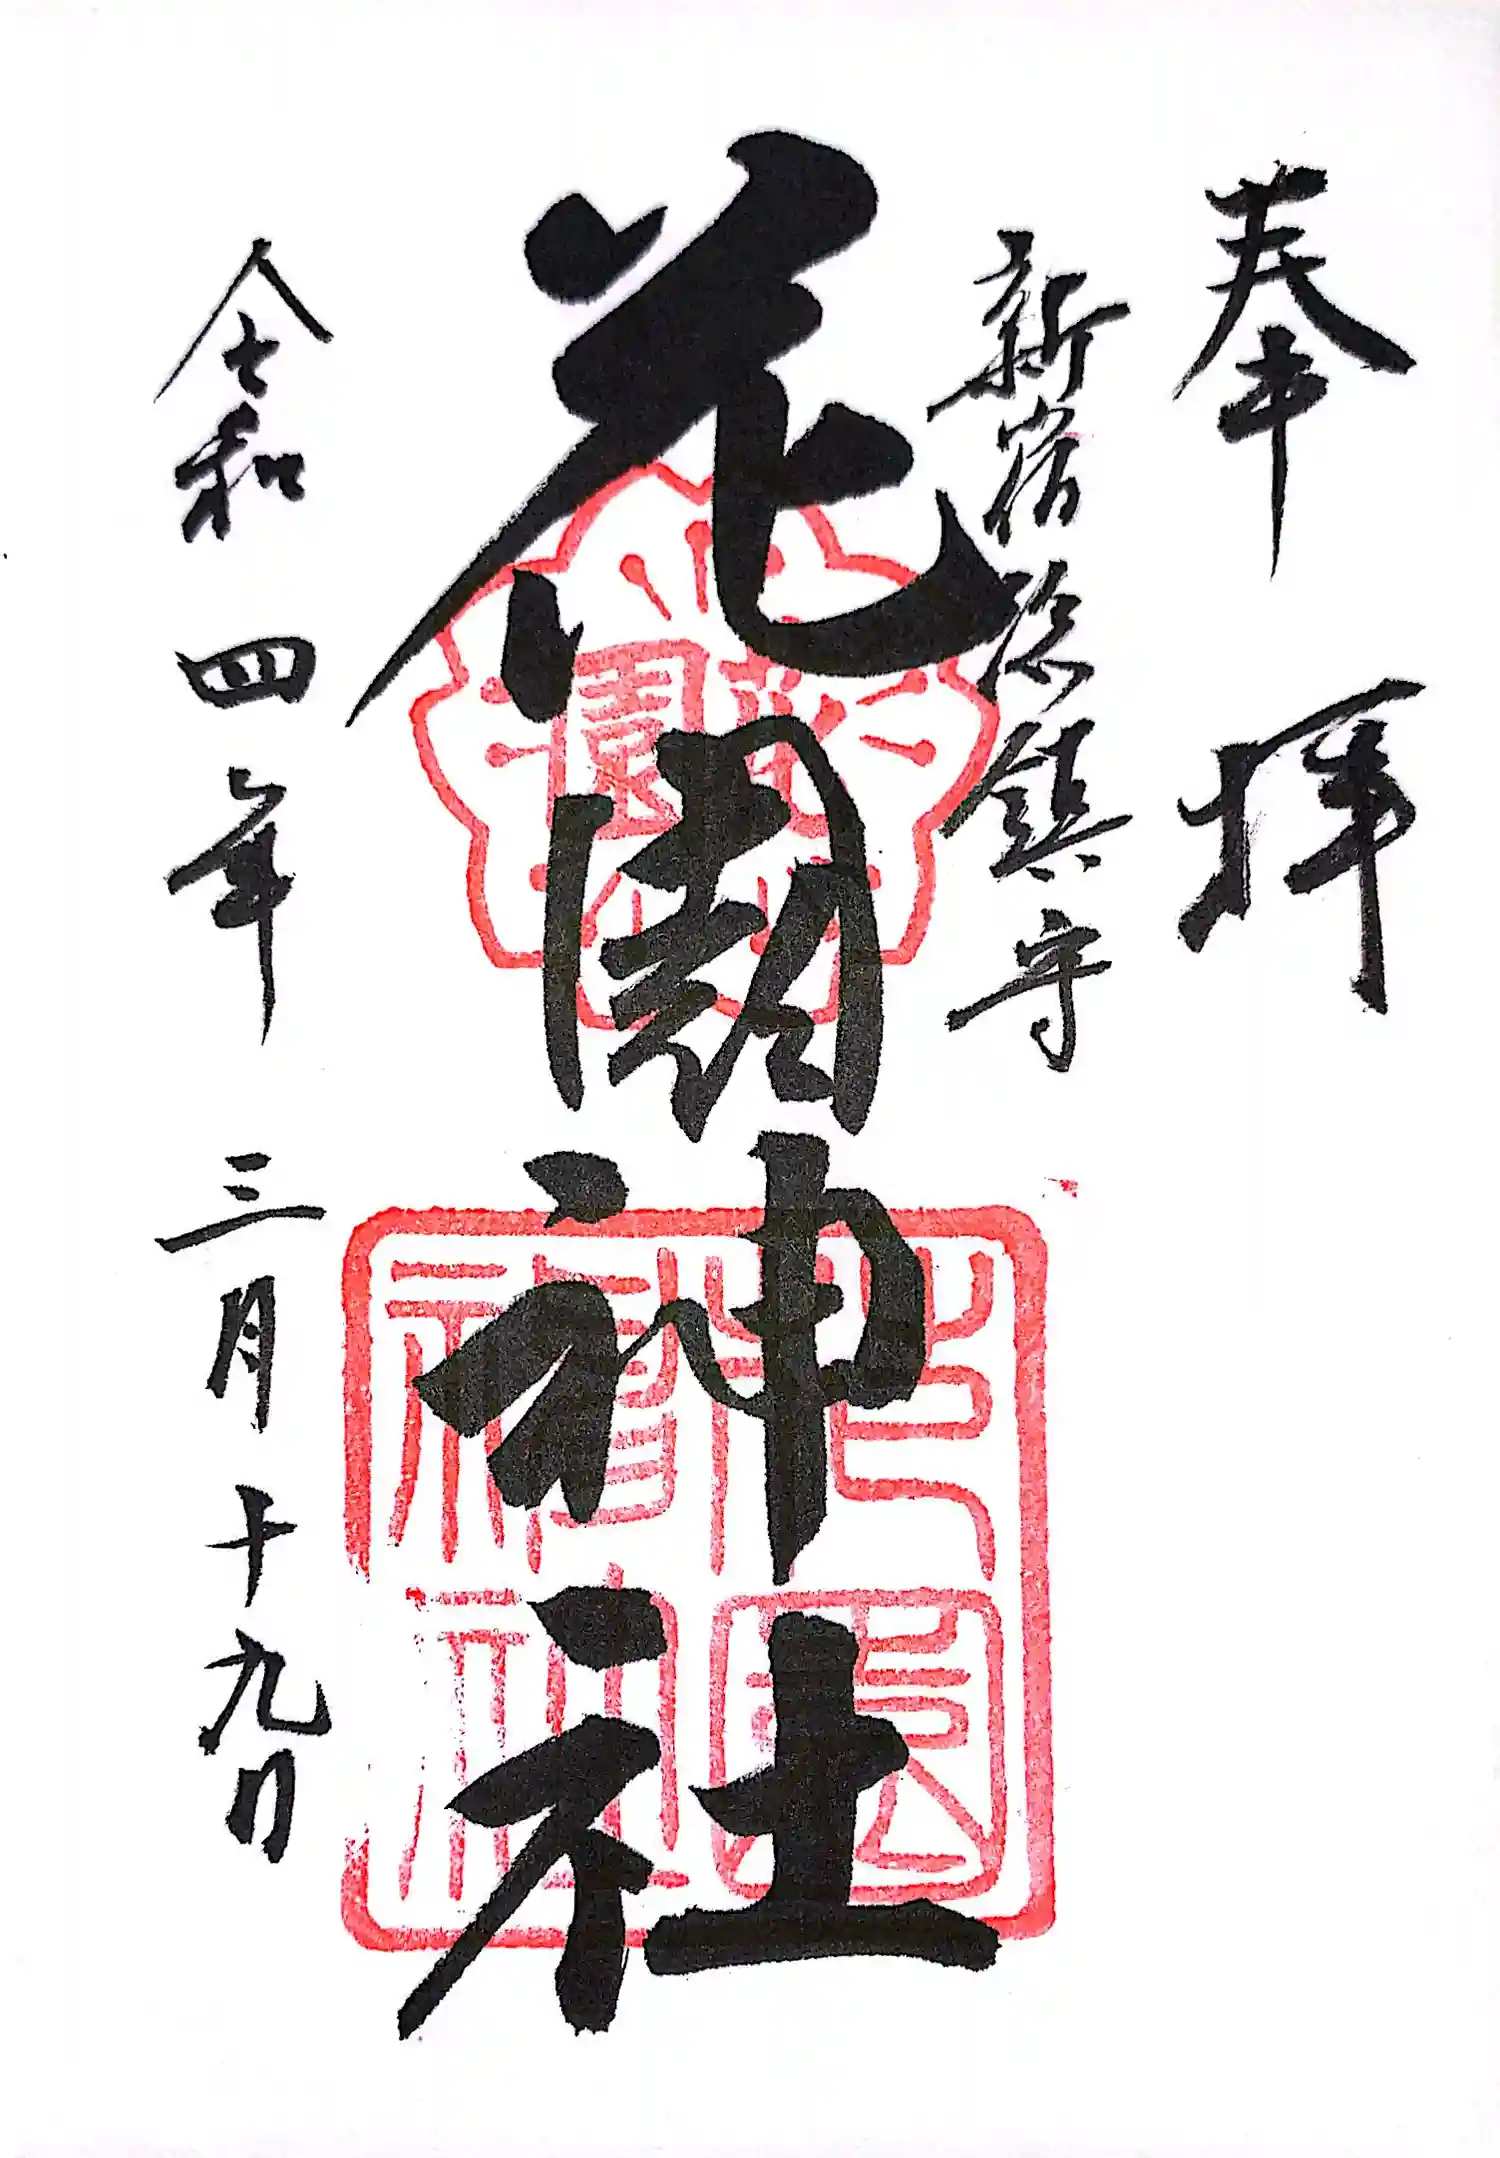 奉拝
新宿総鎮守
花園神社
令和四年 三月十九日
花園神社